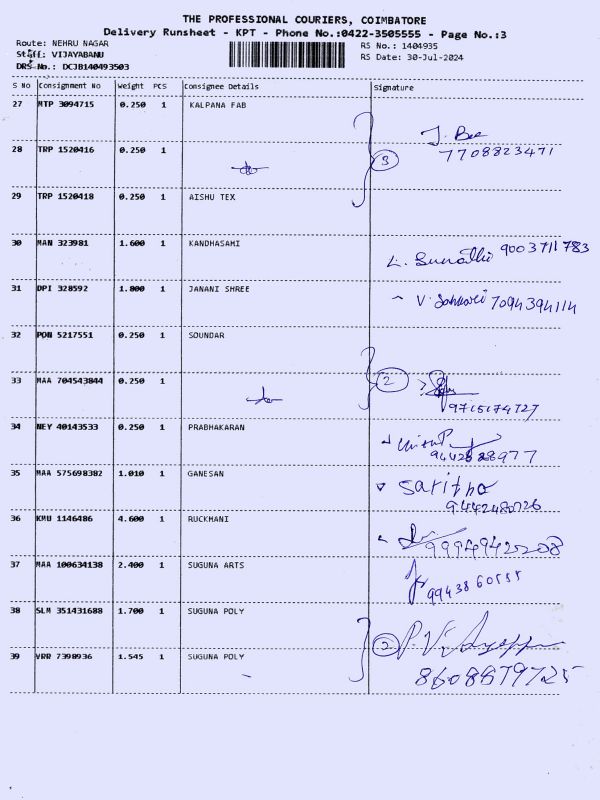 THE PROFESSIONAL COURIERS, COIMBATORE
Delivery Runsheet - KPT - Phone No.:0422-3505555 - Page No.:3
Route: NEHRU NAGAR RS No.: 1404935
Staff: VIJAYABANU RS Date: 30-Jul-2024
DRS No.: DCJB140493503
S No Consignment No Weight PCS Consignee Details Signature
27 MTP 3094715 0.250 1 KALPANA FAB
J. Bee
28 TRP 1520416 0.250 1 3 7708823471
29 TRP 1520418 0.250 1 AISHU TEX
30 MAN 323981 1.600 1 KANDHASAMI 9003711783
31 DPI 328592 1.800 1 JANANI SHREE 7094394114
32 PON 5217551 0.250 1 SOUNDAR
33 MAA 704543844 0.250 1 2
9715174727
34 NEY 40143533 0.250 1 PRABHAKARAN
35 MAA 575698382 1.010 1 GANESAN Saritha
9442480726
36 KMU 1146486 4.600 1 RUCKMANI
37 MAA 100634138 2.400 1 SUGUNA ARTS
38 SLM 351431688 1.700 1 SUGUNA POLY
2
39 VRR 7398936 1.545 1 SUGUNA POLY 8608879725